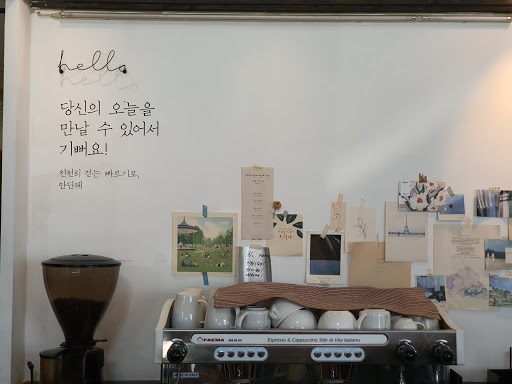 hello
당신의 오늘을
만날 수 있어서
기뻐요!
천천히 걷는 빠르기로,
안단테
FAEMA
Espresso & Cappuccino Stile di Vita Italiano